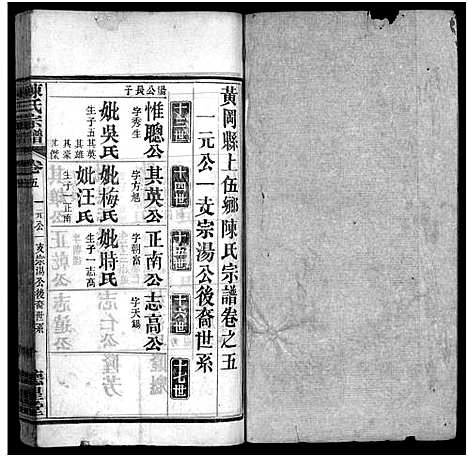 黃岡縣上伍鄉陳氏宗譜卷之五
一元公一支宗湯公後裔世系
十三世
十四世
十五世
十六世
十七世
湯公長子
惟聰公
字秀生
妣吳氏
生子五
其英
其雄
其豪
其傑
其英公
字方旭
妣梅氏
妣汪氏
生子一正南
正南公
字朝富
妣時氏
生子一志高
志高公
字天錫
陳氏宗譜
卷五
一元公一支宗湯公後裔世系